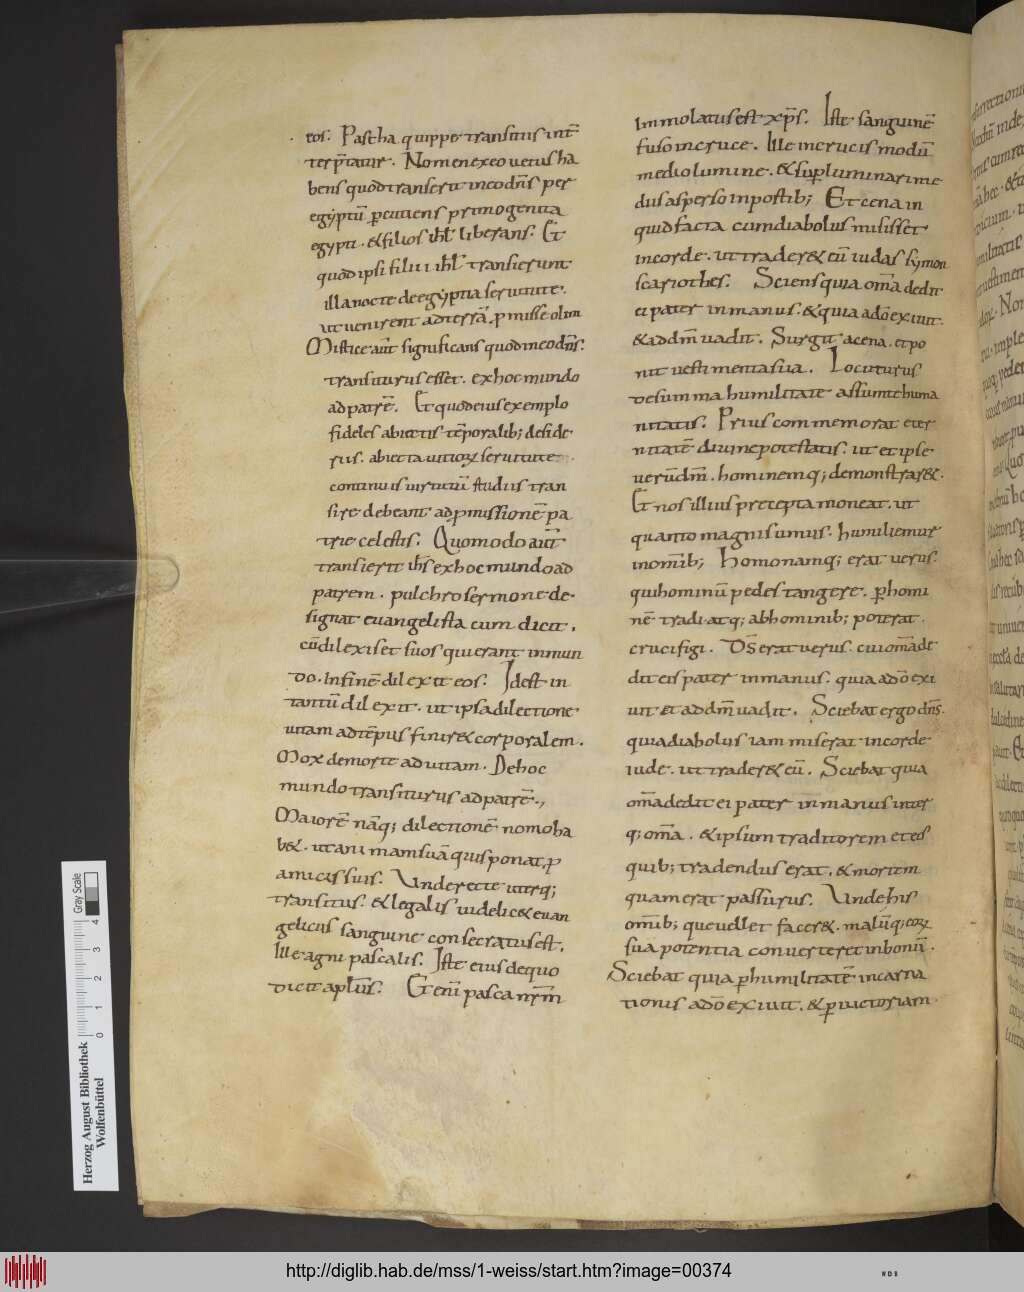 eos. Pascha quippe transitus int̄
terp̄tatur. Nomen ex eo uetus ha
bens quod transerit in eo dn̄s per
egyptū p̄cutiens primogenita
egypti. & filios isrl̄ liberans. Et
quod ipsi filii isrl̄ transierunt
illa nocte de egyptia seruitute.
ut uenirent ad terrā. p̄missę olim
Mistice aūt significans quod in eo dn̄s.
transiturus esset. ex hoc mundo
ad patrē. Et quod eius exemplo
fideles abiectis tēporalib; deside
riis. abiecta uitiorꝫ seruitute
continuis uirtutū studiis tran
sire debeant ad p̄missionē pa
trie celestis. Quomodo aūt
transierit ih̄s ex hoc mundo ad
patrem. pulchro sermone de
signat euangelista cum dicit.
cū dilexisset suos qui erant in mun
do. In finē dilexit eos. Idest in
tantū dilexit. ut ipsa dilectione
uitam ad tēpus finir& corporalem.
Mox de morte ad uitam. De hoc
mundo transiturus ad patrē.,
Maiorē nāq; dilectionē nemo ha
b&. ut animam suā quis ponat p̄
amicis suis. Unde recte uterq;
transitus. & legalis uidelic& euan
gelicus sanguine consecratus est.
Ille agni pascalis. Iste eius de quo
dicit apl̄us. Et enī pasca nr̄m
Immolatus est xp̄s. Iste sanguinē
fuso in cruce. Ille in crucis modū
medio lumine. & sup̄luminari me
dius asperso in postib; Et cena in
quid facta cum diabolus misisset
in corde. ut trader& eū iudas symon
scariothes. Sciens quia om̄a dedit
ei pater in manus. & quia a dō exiuit.
& ad dm̄ uadit. Surgit a cena. et po
nit uestimenta sua. Locuturus
de summa humilitate assumtę huma
nitatis. Prius commemorat eter
nitatē diuine potestatis. ut et ipse
uerū dm̄. hominemq; demonstrar&.
Et nos illius precepta moneat. ut
quanto magni sumus. humiliemur
in om̄ib; Homo namq; erat uerus.
qui hominū pedes tangere. p̄ homi
nē tradi. atq; ab hominib; poterat.
crucifigi. Ds̄ erat uerus. cui om̄a de
dit eis pater in manus. quia a dō exi
uit et ad dm̄ uadit. Sciebat ergo dn̄s.
quia diabolus iam miserat in corde
iude. ut trader& eū. Sciebat quia
om̄a dedit ei pater in manus inter
q; om̄a. & ipsum traditorem et eos
quib; tradendus erat. & mortem
quam erat passurus. Unde his
om̄ib; que uellet facer&. malūq; eorꝫ
sua potentia conuerteret in bonū.
Sciebat quia p̄ humilitatē incarna
tionis a dō exiuit. & p̄ uictoriam
Herzog August Bibliothek
Wolfenbüttel
Gray Scale
0 1 2 3 4
http://diglib.hab.de/mss/1-weiss/start.htm?image=00374